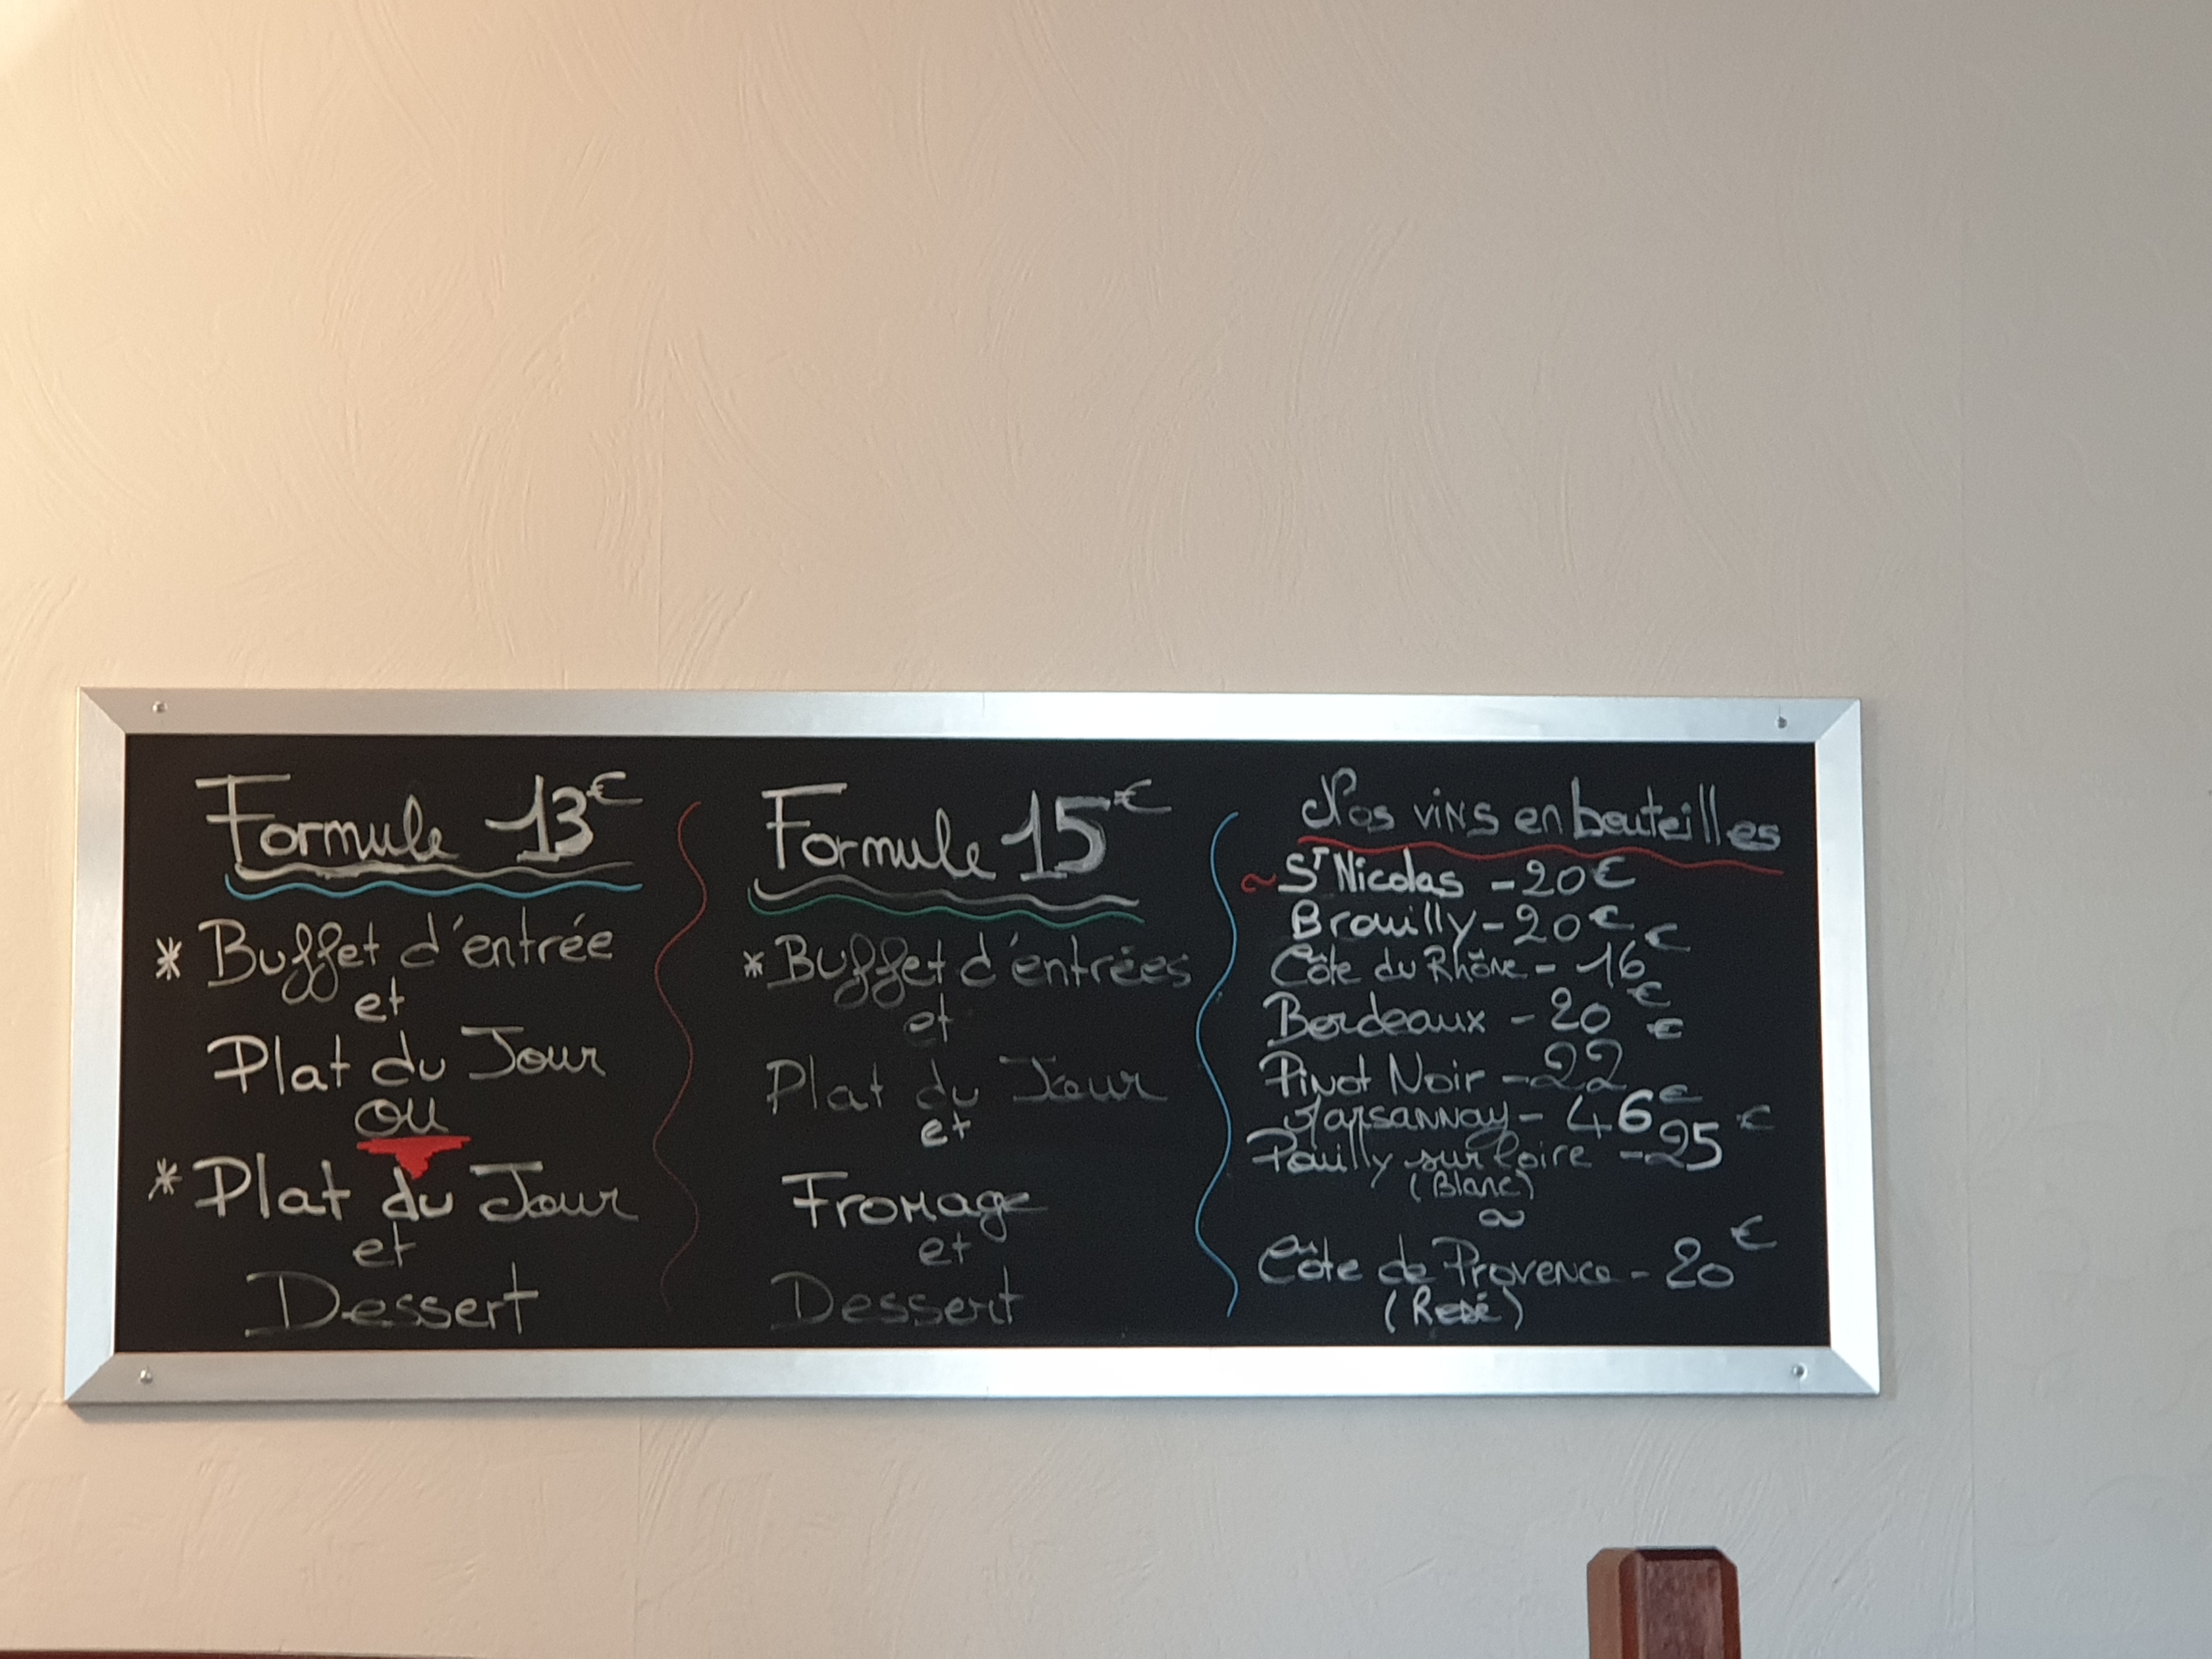 Formule 13€
* Buffet d'entrée
et
Plat du Jour
ou
* Plat du Jour
et
Dessert
Formule 15€
* Buffet d'entrées
et
Plat du Jour
et
Fromage
et
Dessert
Nos vins en bouteilles
~ St Nicolas - 20€
Brouilly - 20€
Côte du Rhône - 16€
Bordeaux - 20€
Pinot Noir - 22€
Marsannay - 46€
Pouilly sur Loire - 25€
(Blanc)
~
Côte de Provence - 20€
(Rosé)